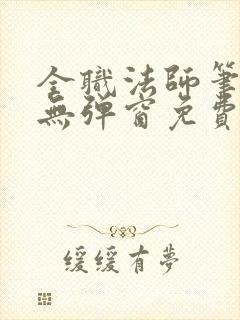 全職法師筆
無彈窗免費
緩緩有夢